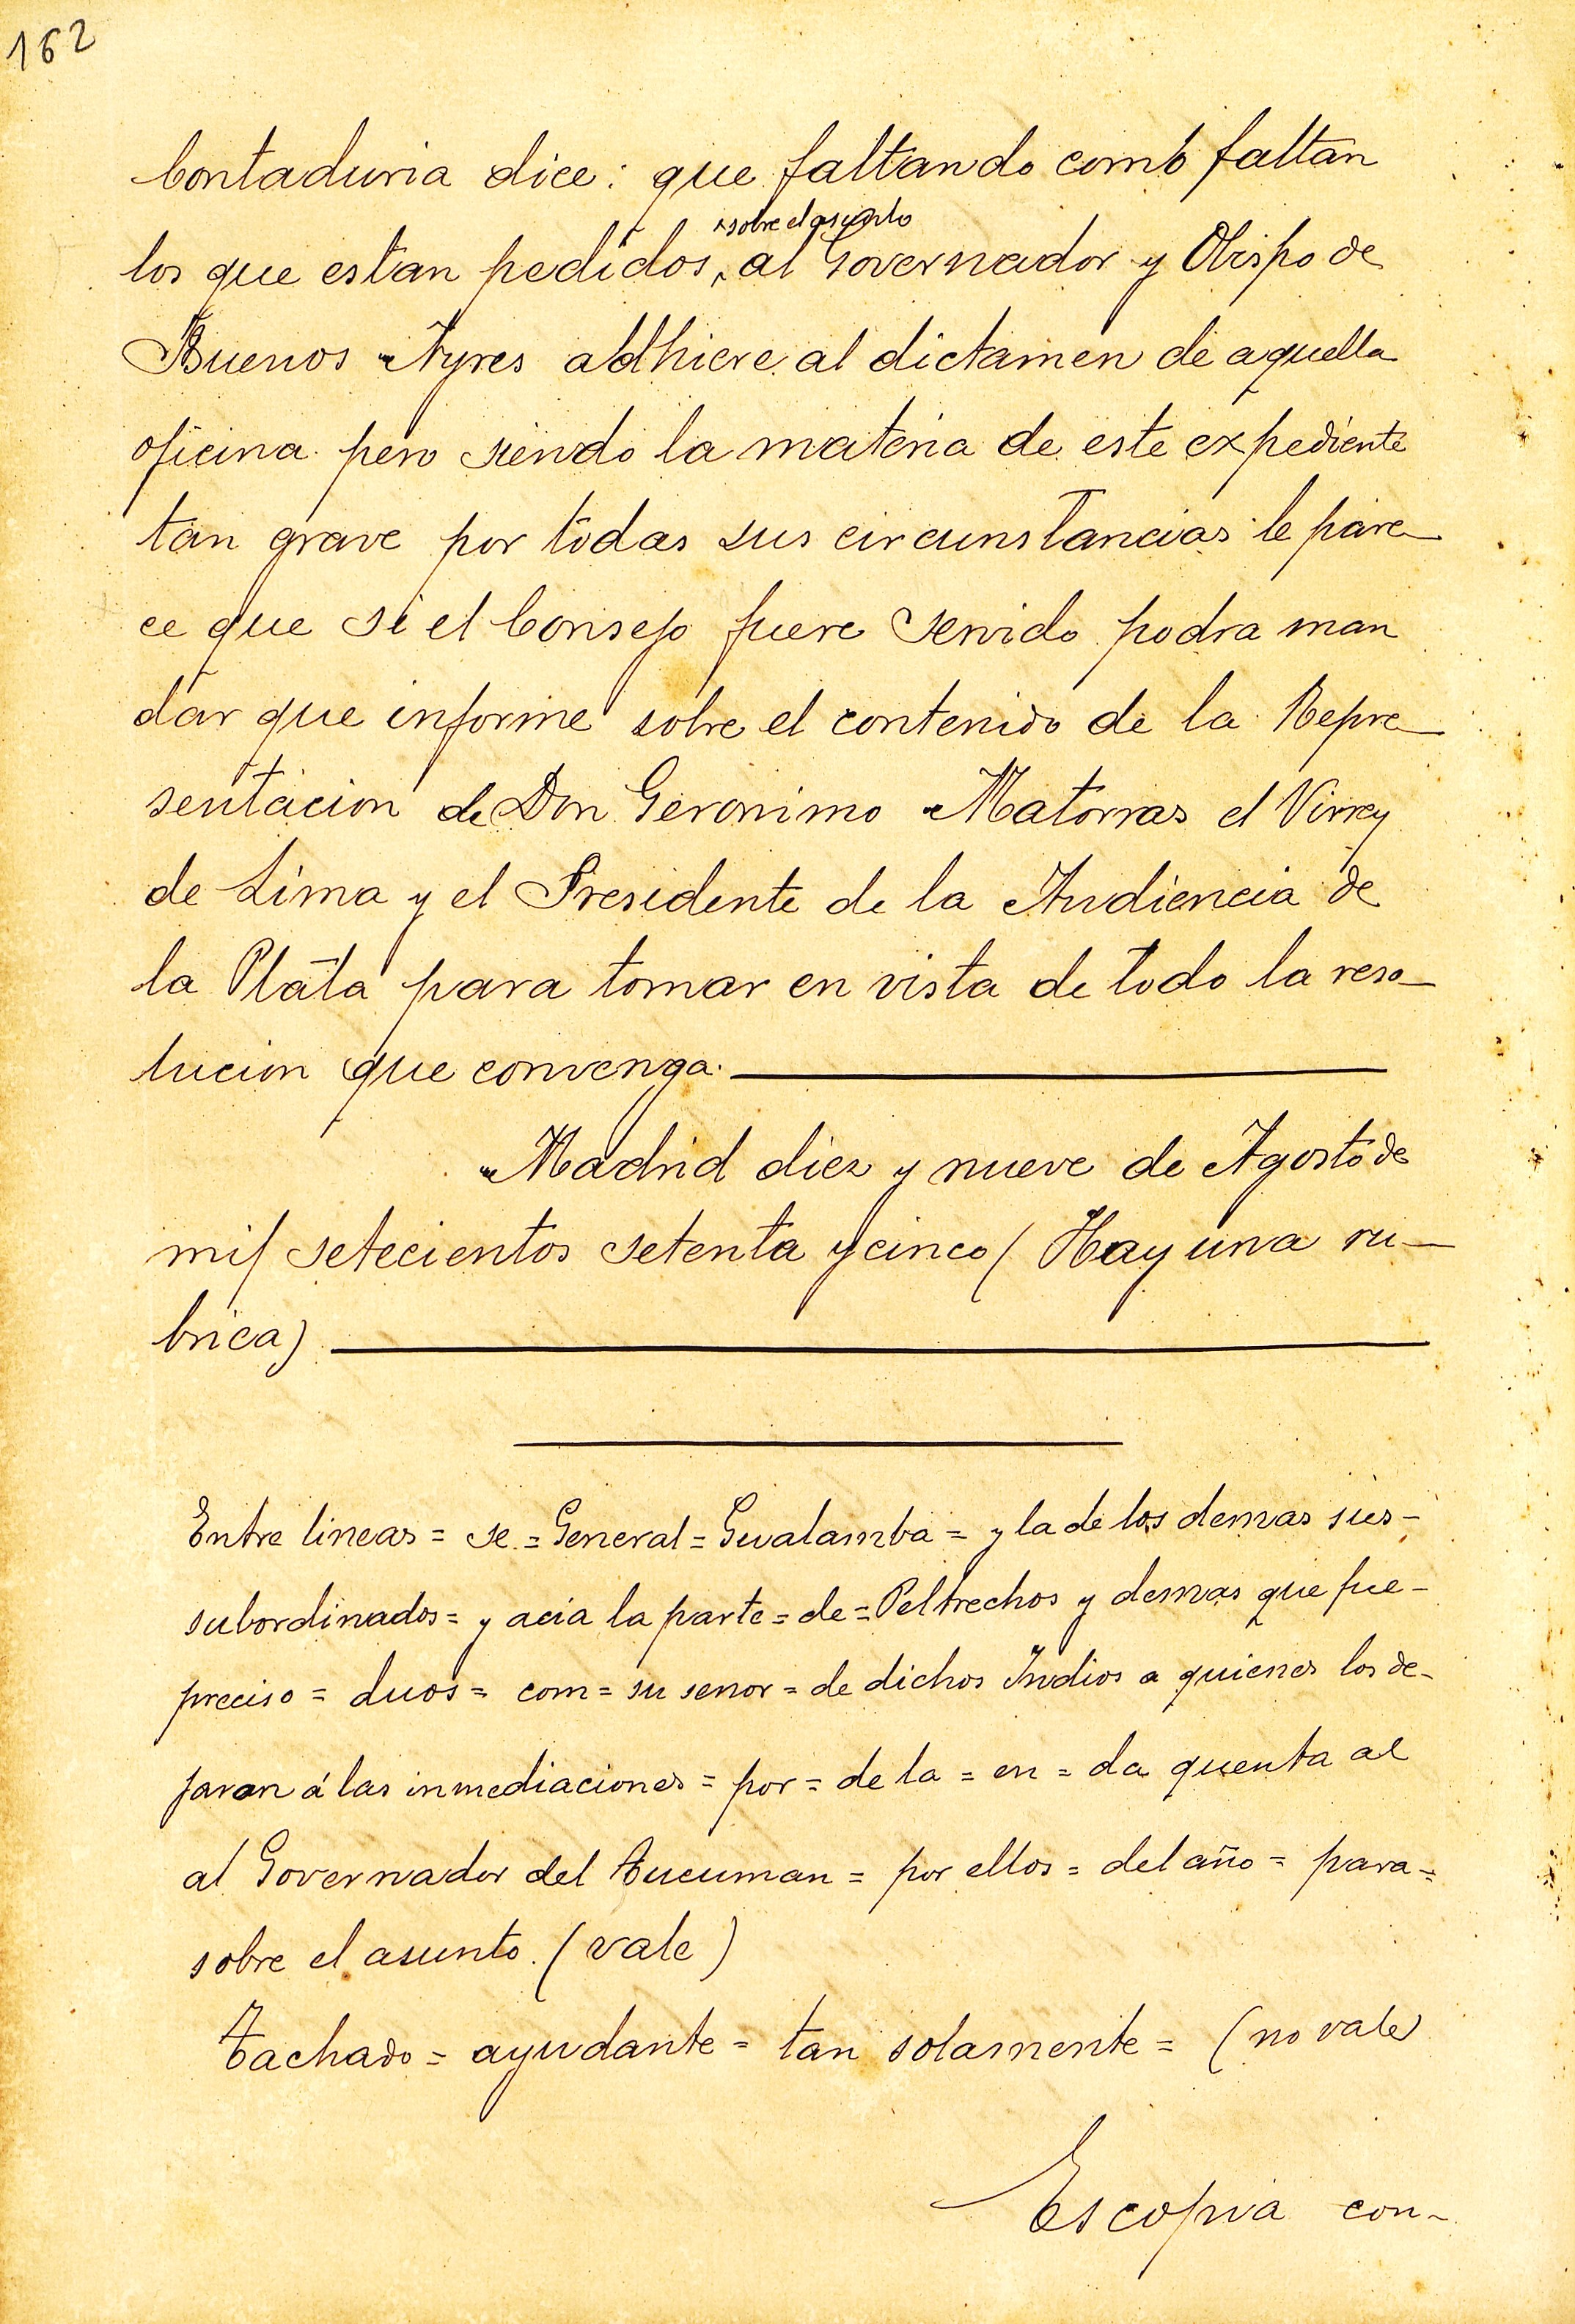 162
Contaduria dice: que faltando como faltan
sobre el asunto
los que estan pedidos, al Governador y Obispo de
Buenos Ayres adhiere al dictamen de aquella
oficina pero siendo la materia de este expediente
tan grave por todas sus circunstancias le pare_
ce que si el Consejo fuere servido podra man
dar que informe sobre el contenido de la Repre_
sentacion de Don Geronimo Matorras el Virrey
de Lima y el Presidente de la Audiencia de
la Plata para tomar en vista de todo la reso_
lucion que convenga.
Madrid diez y nueve de Agosto de
mil setecientos setenta y cinco (Hay una ru_
brica)
Entre lineas = se = General = Gualamba = y la de los demas sus-
subordinados = y acia la parte = de = Peltrechos y demas que fue-
preciso = duos = com = su senor = de dichos Indios a quienes los de-
jaron á las inmediaciones = por = de la = en = da quenta al
al Governador del Tucuman = por ellos = del año = para =
sobre el asunto. (vale)
Tachado = ayudante = tan solamente = (no vale)
Es copia con-